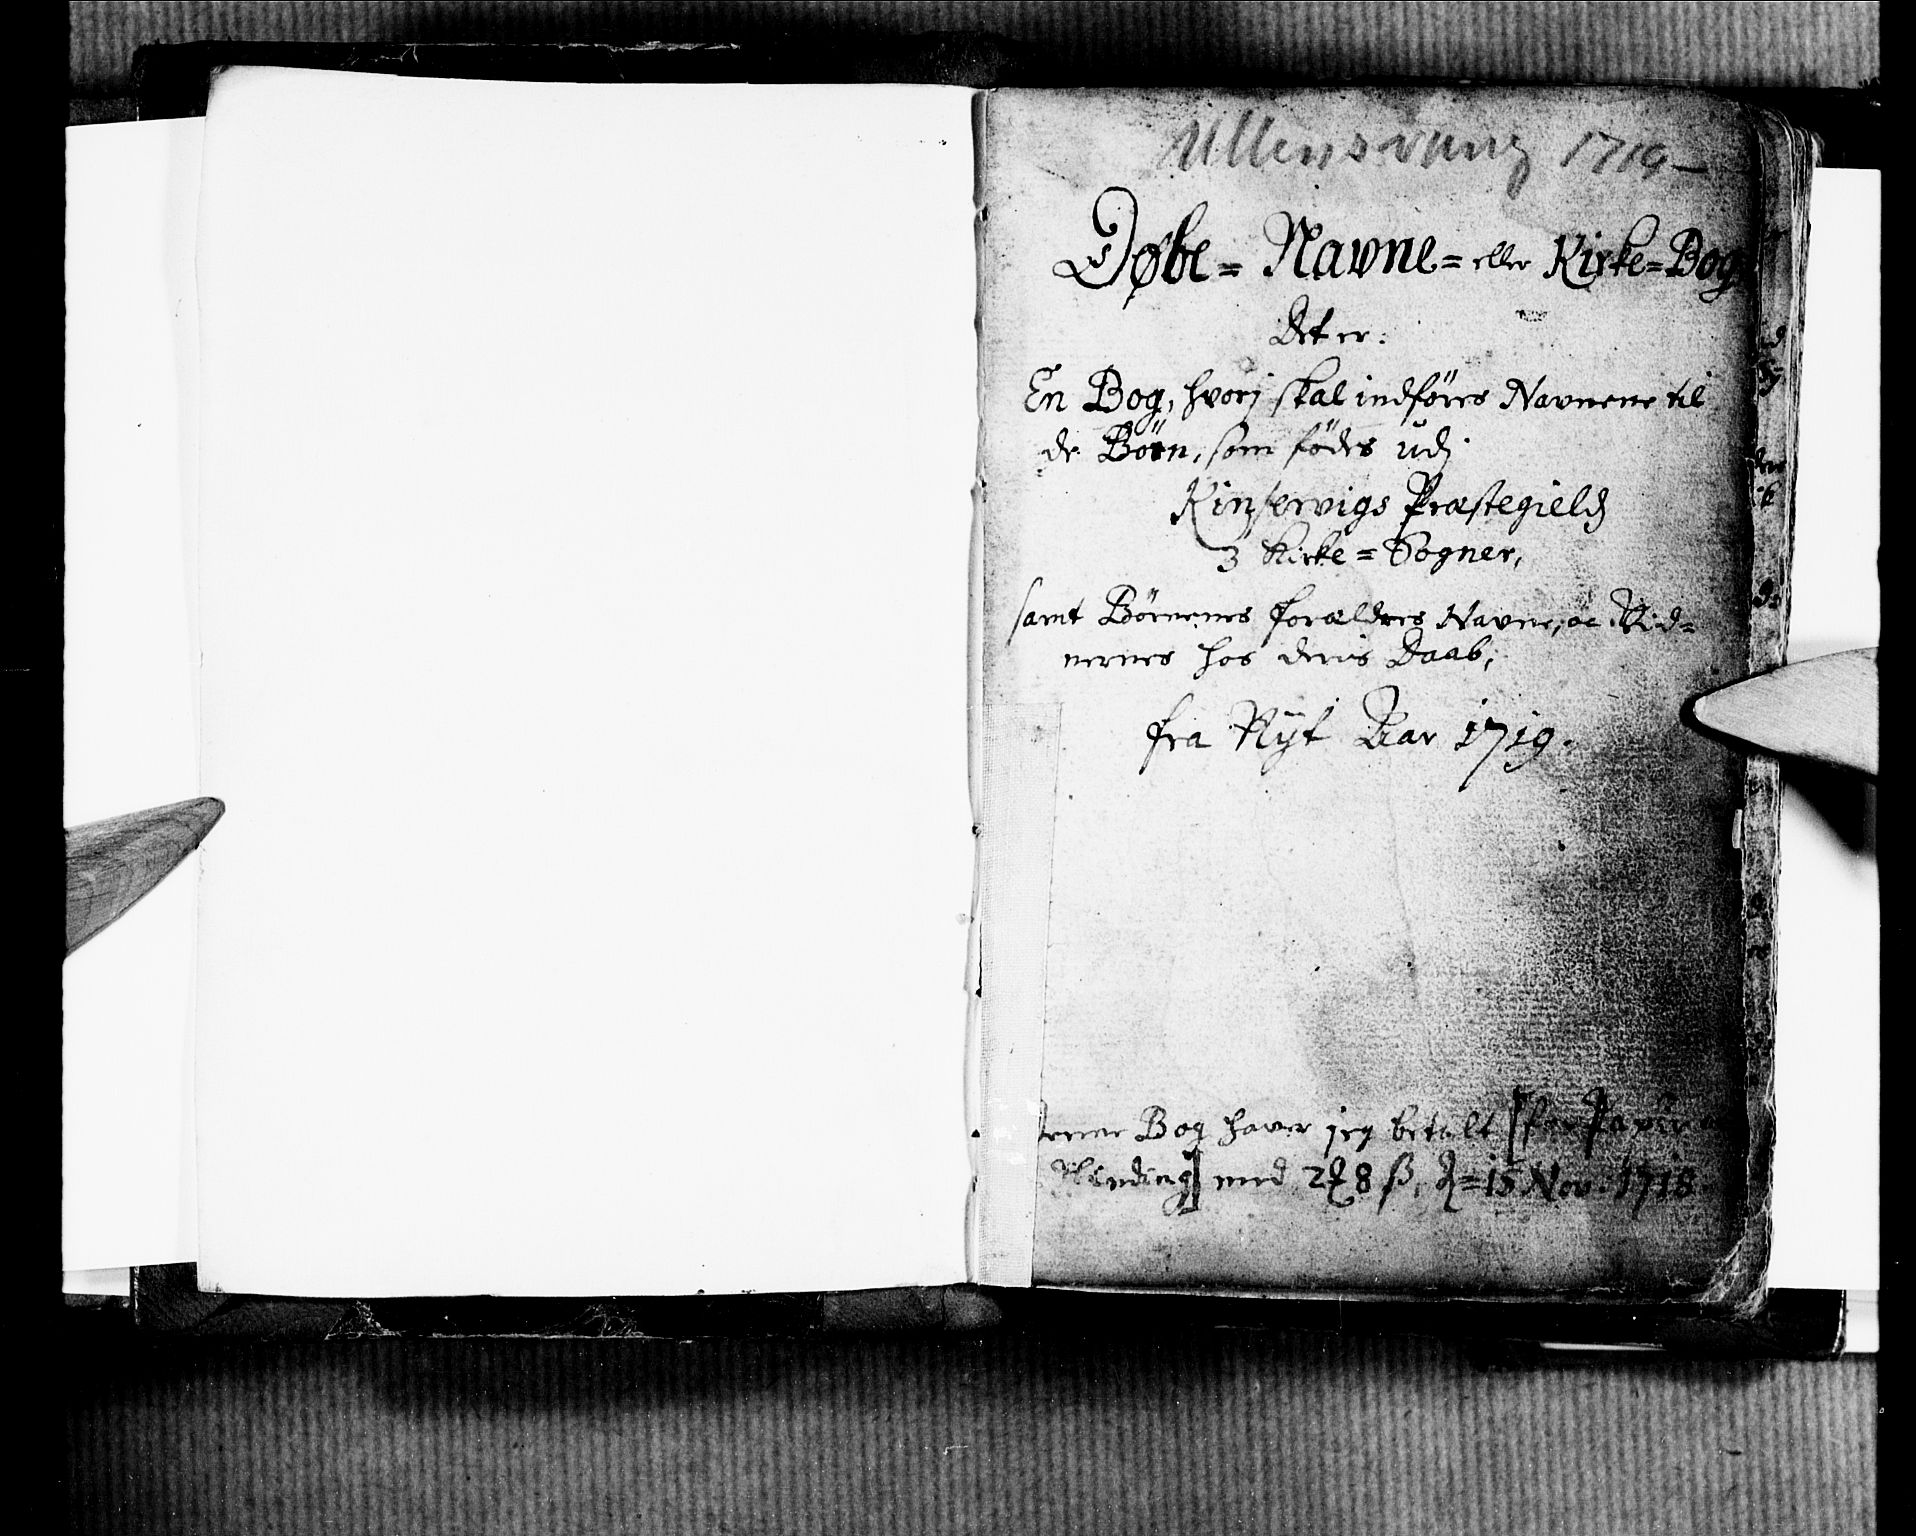 Ullensvang 1719–
Døbe= Navne= eller Kirke=Bog
Det er:
En Bog, hvorj skal indføres Navnene til
de Börn, som fødes udj
Kinservigs Præstegield
3 Kirke=Sogner,
samt Börnenes forældres Navne, oc Vid=
nernes hos deris Daab,
fra Nyt Aar 1719.
Denne Bog haver jeg betalt [for Papir
Binding] med 2 8 ß, d= 15 Nov: 1718